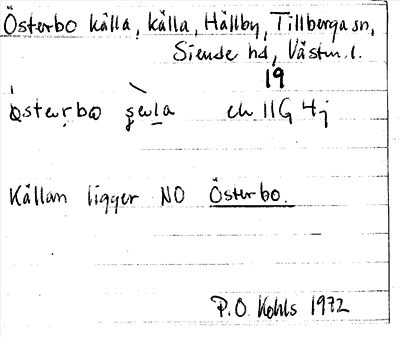 Österbo källa, källa, Hällby, Tillberga sn,
Siende hd, Västm. l.
19
ek 11G 4j
Källan ligger NO Österbo.
P.O. Kohls 1972